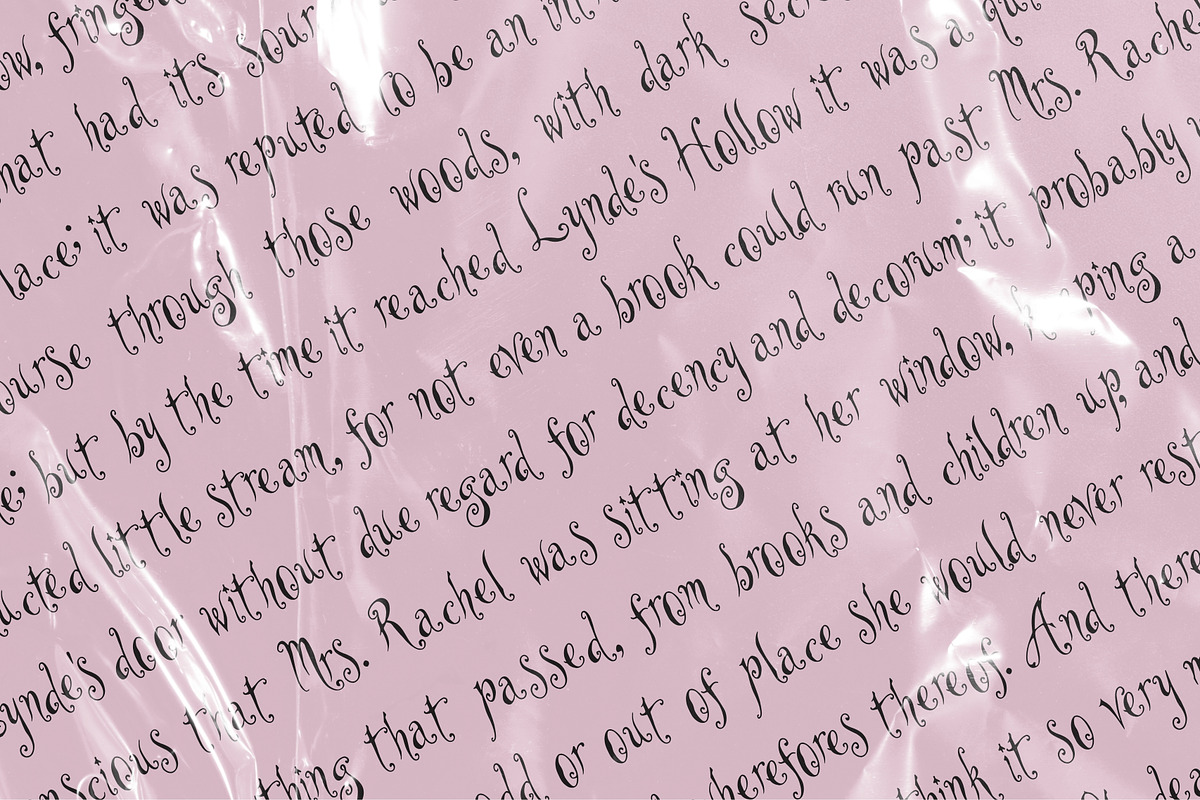 ow, fringed
hat had its sour
lace; it was reputed to be an in
ourse through those woods, with dark secre
e; but by the time it reached Lynde's Hollow it was a qui
ucted little stream, for not even a brook could run past Mrs. Rache
ynde's door without due regard for decency and decorum; it probably
nscious that Mrs. Rachel was sitting at her window, keeping a
thing that passed, from brooks and children up, and
odd or out of place she would never rest
herefores thereof. And there
think it so very